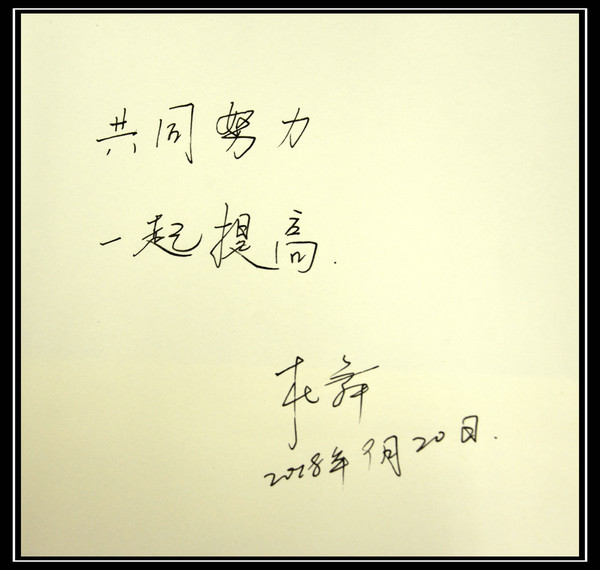 共同努力
一起提高.
2018年9月20日.